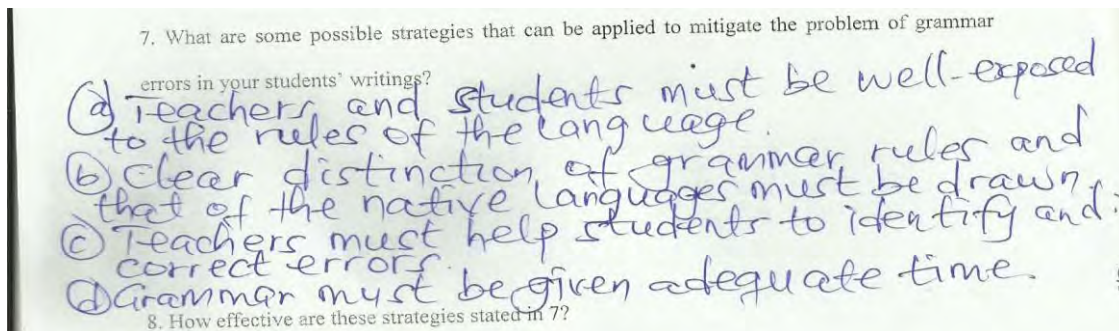 7. What are some possible strategies that can be applied to mitigate the problem of grammar
errors in your students' writings?
(a) Teachers and students must be well-exposed
to the rules of the language.
(b) Clear distinction of grammar rules and
that of the native languages must be drawn.
(c) Teachers must help students to identify and
correct errors.
(d) Grammar must be given adequate time.
8. How effective are these strategies stated in 7?